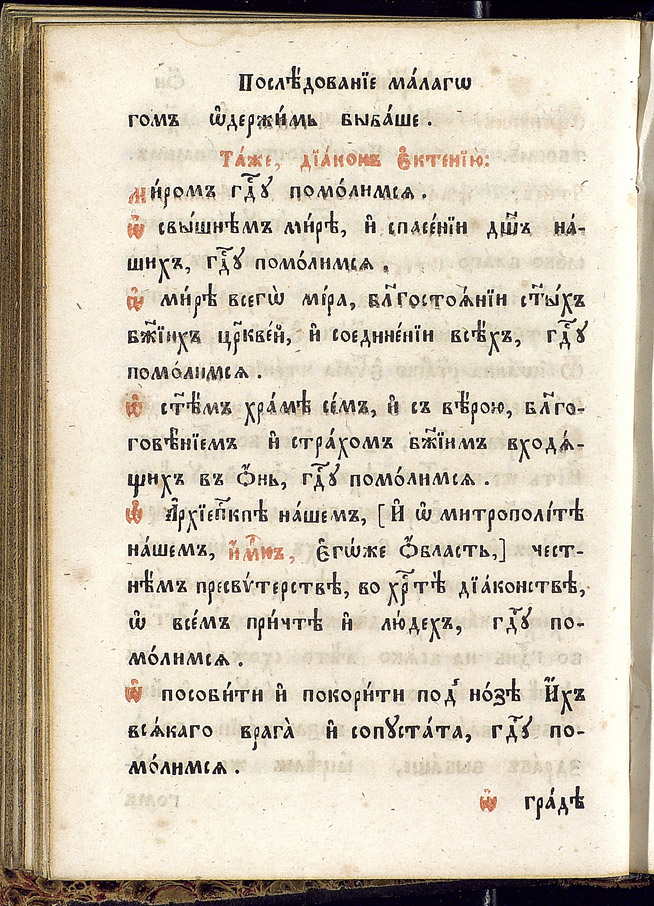 Послѣ́дованїе ма́лагѡ
гомъ ѡ҆держи́мь быва́ше.
Та́же, дїа́конъ є҆ктенїю̀:
Ми́ромъ гдⷭ҇у помо́лимсѧ.
Ѽ свы́шнѣмъ ми́рѣ, и҆ спасе́нїи дш҃ъ на́-
шихъ, гдⷭ҇у помо́лимсѧ.
Ѽ ми́рѣ всегѡ̀ мі́ра, бл҃гостоѧ́нїи ст҃ы́хъ
бж҃їихъ цр҃кве́й, и҆ соедине́нїи всѣ́хъ, гдⷭ҇у
помо́лимсѧ.
Ѽ ст҃ѣ́мъ хра́мѣ се́мъ, и҆ съ вѣ́рою, бл҃го-
говѣ́нїемъ и҆ стра́хомъ бж҃їимъ входѧ́-
щихъ въ ѻ҆́нь, гдⷭ҇у помо́лимсѧ.
Ѽ А҆рхїепⷭ҇кпѣ на́шемъ, [И҆ ѡ҆ митрополі́тѣ
на́шемъ, и҆́мⷬ҇къ, Є҆гѡ́же ѻ҆́бласть,] чест-
нѣ́мъ пресвѵ́терствѣ, во хрⷭ҇тѣ̀ дїа́конствѣ,
ѡ҆ все́мъ при́чтѣ и҆ лю́дехъ, гдⷭ҇у по-
мо́лимсѧ.
Ѽ пособи́ти и҆ покори́ти под̾ но́зѣ И҆́хъ
всѧ́каго врага̀ и҆ сопꙋста́та, гдⷭ҇у по-
мо́лимсѧ.
Ѽ гра́дѣ